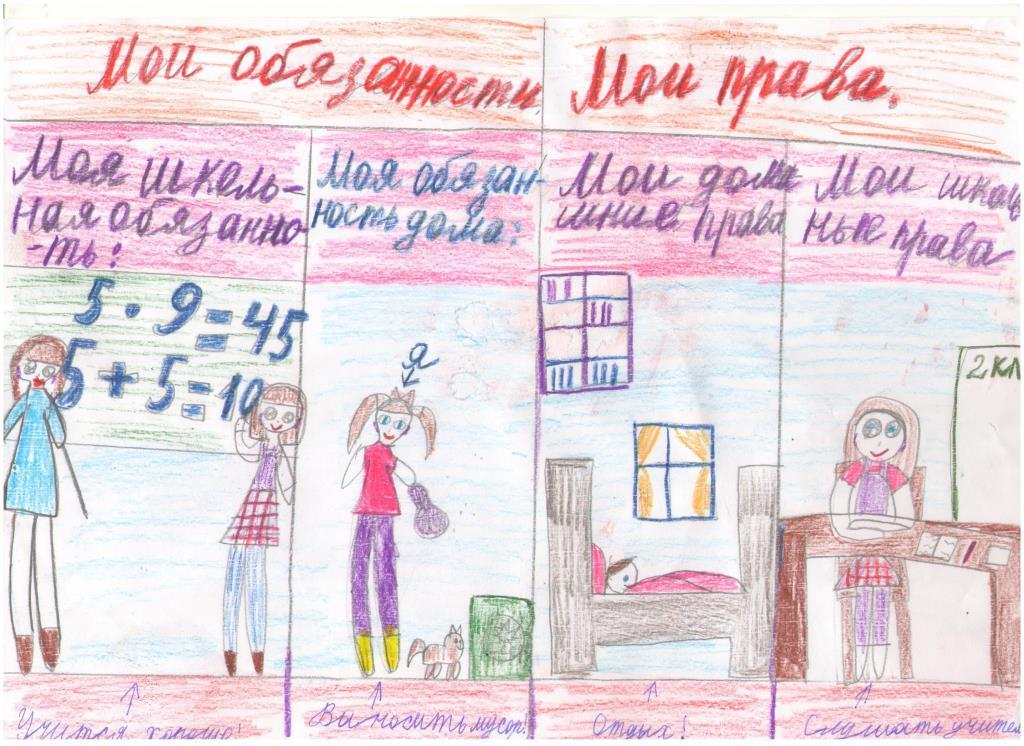 Мои обязанности.
Мои права.
Моя школь-
ная обязанно-
-ть:
5 · 9 = 45
5 + 5 = 10
Учится хорошо!
Моя обязан-
ность дома:
я
Выносить мусор!
Мои дома
шние права
Отдых!
Мои школь
ные права
2 кл
Слушать учител